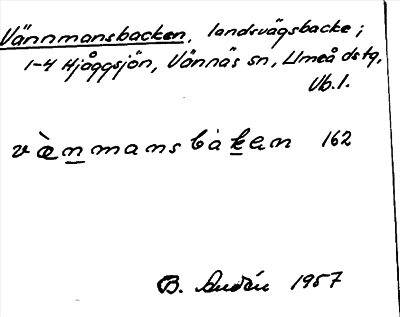 Vännmansbacken, landsvägsbacke;
1-4 Hjåggsjön, Vännäs sn, Umeå dstg,
Vb. l.
vä̀nmansbàkan 162
B. Lundén 1957